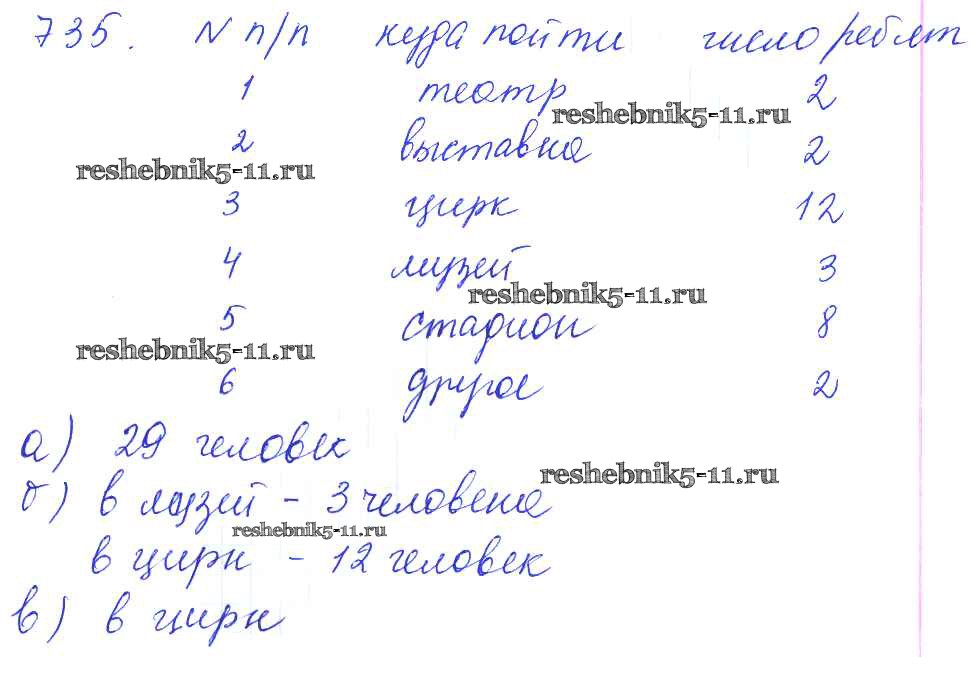 735. N п/п куда пойти число ребят
1 театр 2
reshebnik5-11.ru
2 выставка 2
reshebnik5-11.ru
3 цирк 12
4 музей 3
reshebnik5-11.ru
5 стадион 8
reshebnik5-11.ru
6 другое 2
а) 29 человек
reshebnik5-11.ru
б) в музей - 3 человека
reshebnik5-11.ru
в цирк - 12 человек
в) в цирк